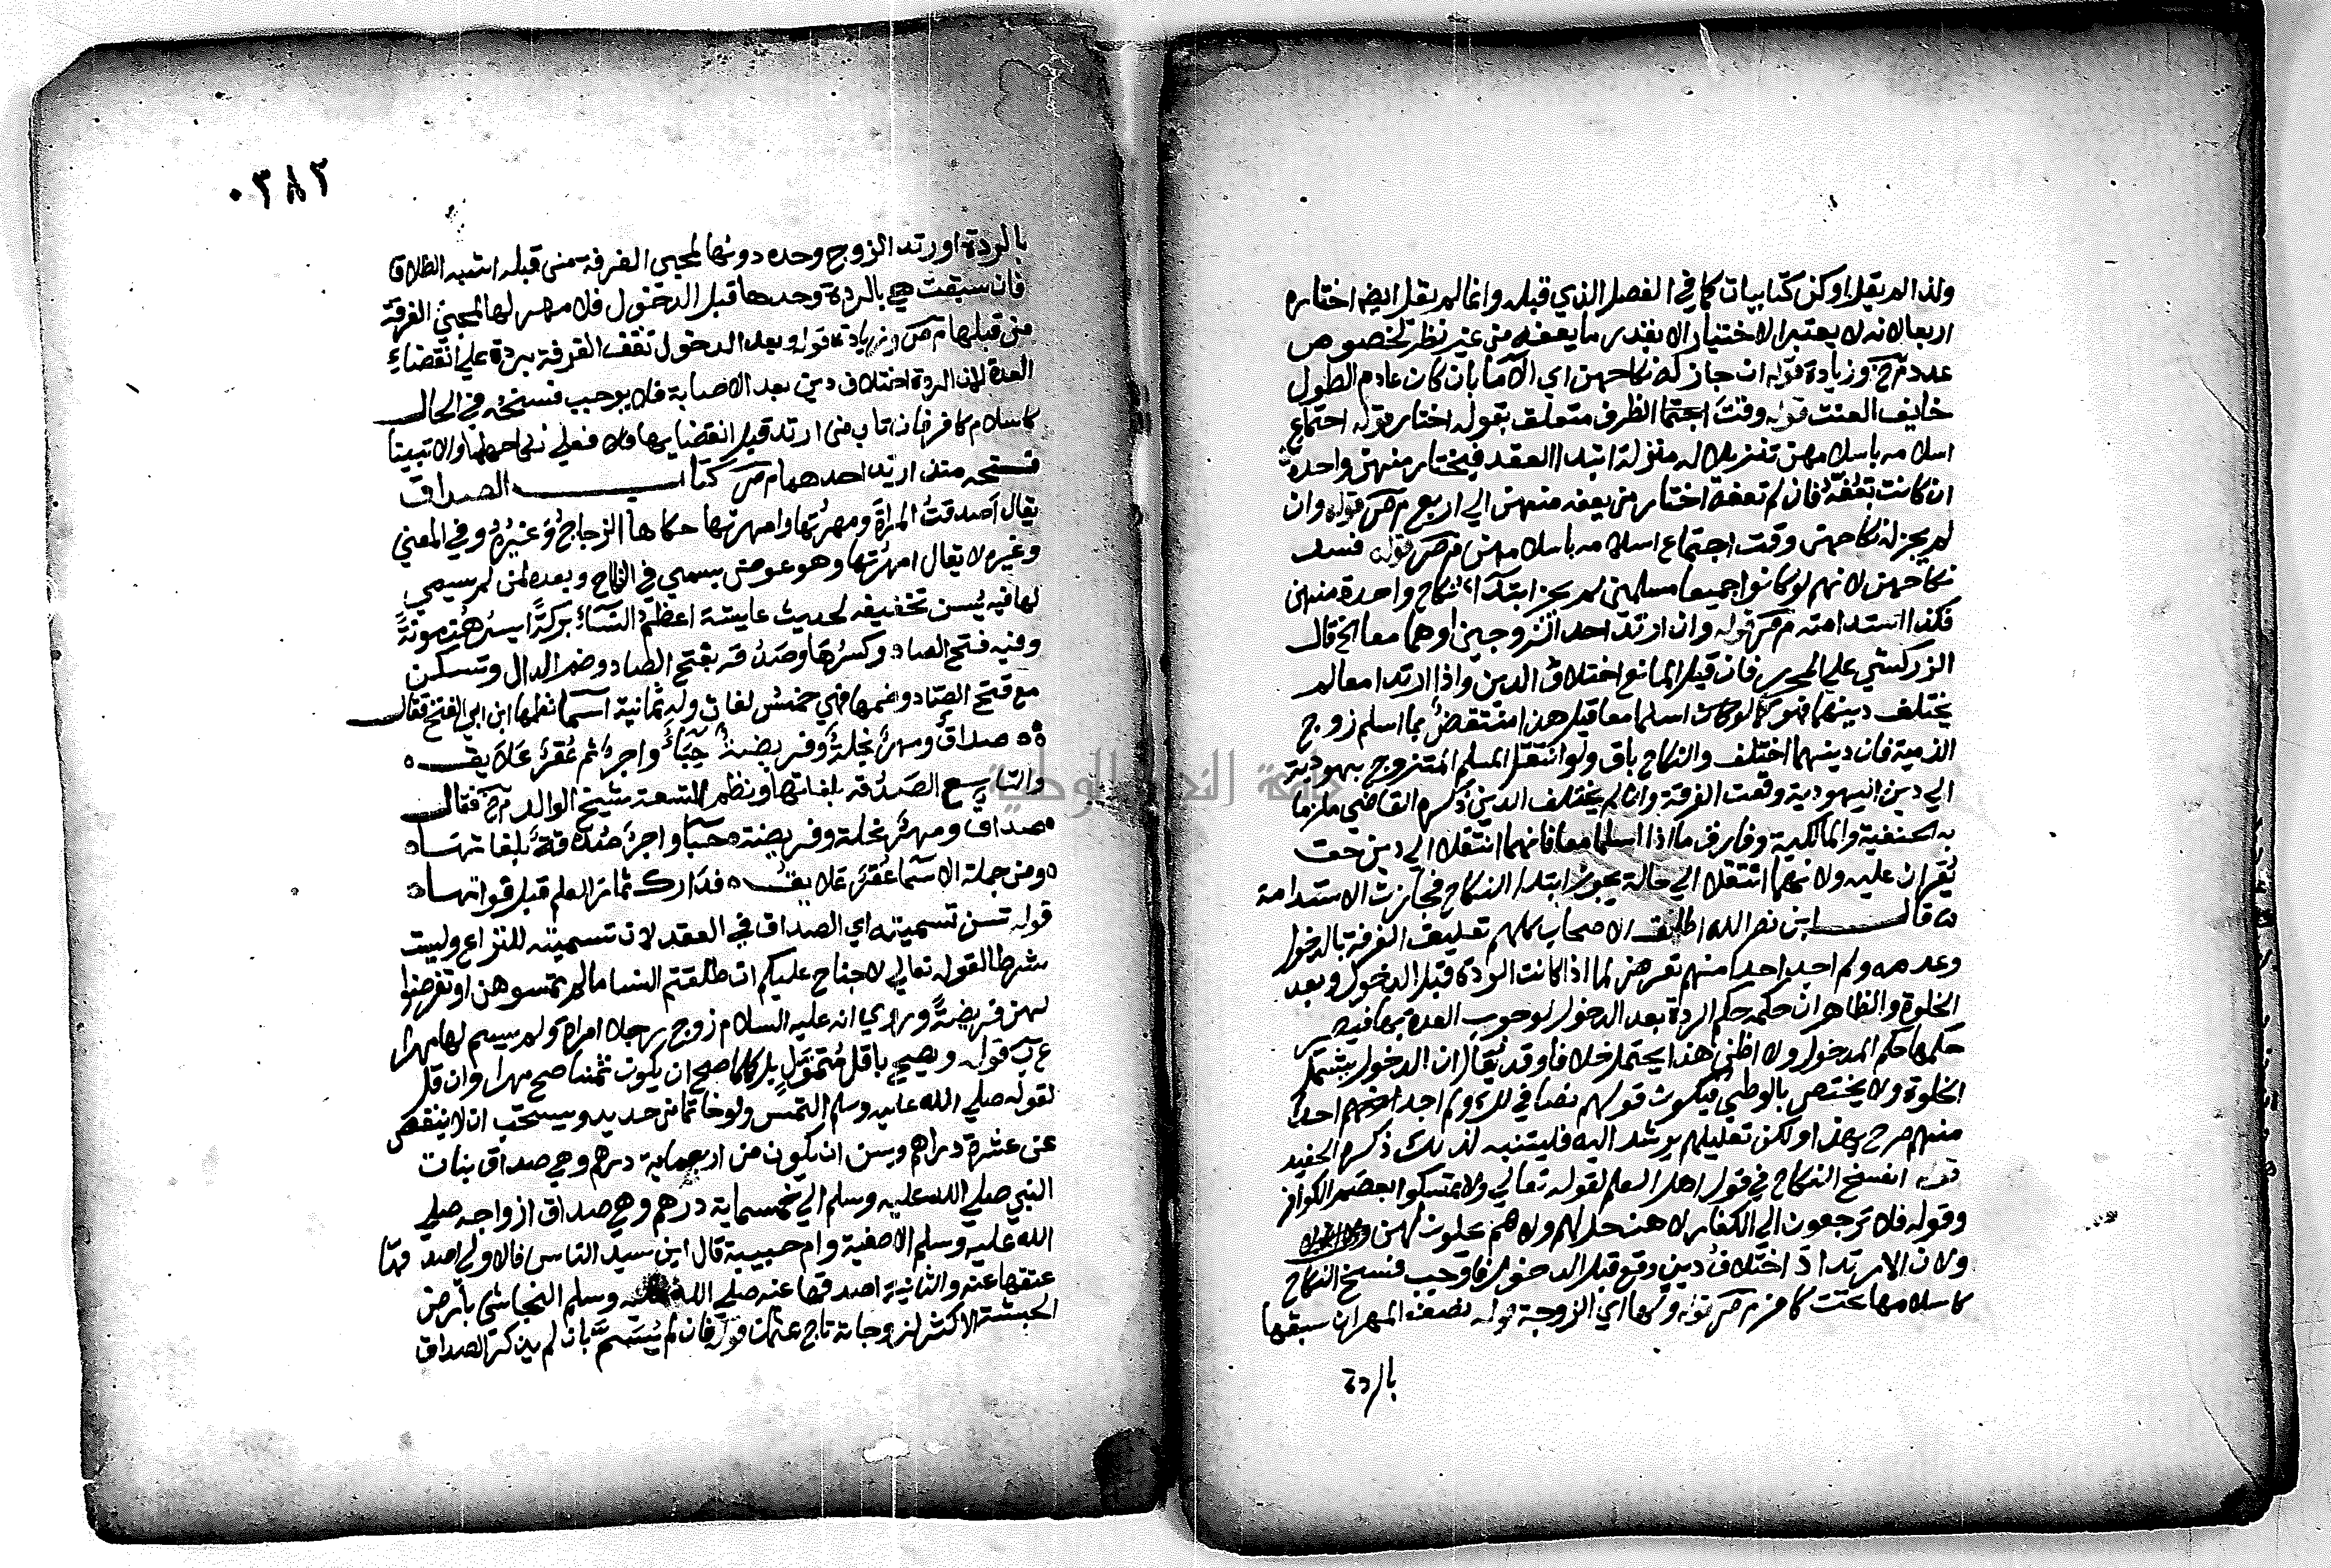 ولذا لم يقل او كن كتابيات كما في الفصل الذي قبله وانما لم يقل ايضا اختار
اربعا لانه لا يعتبر الاختيار الا بقدر ما يعفه من غير نظر لخصوص
عدد م خ وزيادة قوله ان جاز له نكاحهن اي الاما بان كان عادم الطول
خايف العنت قوله وقت اجتما الظرف متعلق بقوله اختار قوله اجتماع
اسلامه باسلامهن تنزيلا له منزلة ابتدا العقد فيختار منهن واحدة
ان كانت تعفه فان لم تعفه اختار من يعفه منهن الي اربع م ص قوله وان
لم يجز له نكاحهن وقت اجتماع اسلامه باسلامهن م ص قوله فسد
نكاحهن لانهم لو كانوا جميعا مسلمين لم يجز ابتداء نكاح واحدة منهن
فكذا استدامته م ص قوله وان ارتد احد الزوجين او هما معا الخ قال
الزركشي علي المحرر فان قيل المانع اختلاف الدين واذا ارتدا معا لم
يختلف دينهما فهو كما لو اسلما معا قيل هذا منتقض بما اسلم زوج
الذمية فان دينهما اختلف والنكاح باق ولو انتقل المسلم المتزوج بيهودية
الي دين اليهودية وقعت الفرقة وان لم يختلف الدين ذكره القاضي ملزما
به الحنفية والمالكية وفارق ما اذا اسلما معا فانهما انتقلا الي دين حق
يقران عليه ولانهما انتقلا الي حالة يجوز ابتداء النكاح فجازت الاستدامة
قال ابن نصر الله اطلق الاصحاب كلهم تعليق الفرقة بالدخول
وعدمه ولم اجد احدا منهم تعرض لما اذا كانت الردة قبل الدخول وبعد
الخلوة والظاهر ان حكمه حكم الردة بعد الدخول لوجوب العدة بها فيصير
حكمها حكم المدخول ولا اظن هذا يحتمل خلافا وقد يقال ان الدخول يشمل
الخلوة ولا يختص بالوطئ فيكون قولهم نصا في ذلك ولم اجد احدا
منهم صرح بهذا ولكن تعليلهم يرشد اليه فليتنبه لذلك ذكره الحفيد
قوله انفسخ النكاح في قول اهل العلم لقوله تعالي ولا تمسكوا بعصم الكوافر
وقوله فلا ترجعوهن الي الكفار لا هن حل لهم ولا هم يحلون لهن
ولان الارتداد اختلاف دين وقع قبل الدخول فاوجب فسخ النكاح
كاسلامها تحت كافر م ص قوله ولها اي الزوجة قوله نصف المهر ان سبقها
بالردة
٠٣٨٢
بالردة او ارتد الزوج وحده دونها لمجي الفرقة من قبله اشبه الطلاق
فان سبقت هي بالردة وحدها قبل الدخول فلا مهر لها لمجئ الفرقة
من قبلها م ص وزيادة قوله وبعد الدخول تقف الفرقة بردة علي انقضاء
العدة لان الردة اختلاف دين بعد الاصابة فلا يوجب فسخه في الحال
كاسلام كافر فان تاب من ارتد قبل انقضايها فلا فعلي نكاحهما والا تبينا
فسخه منذ ارتد احدهما م ص كتاب الصداق
يقال اصدقت المراة ومهرتها وامهرتها حكاها الزجاج وغيره وفي المغني
وغيره لا يقال امهرتها وهو عوض يسمي في النكاح وبعده لمن لم يسمي
لها فيه يسن تخفيفه لحديث عايشة اعظم النساء بركة ايسرهن مونة
وفيه فتح الصاد وكسرها وصدقه بفتح الصاد وضم الدال وتسكن
مع فتح الصاد وضمها فهي خمس لغات وله ثمانية اسما نظمها ابن ابي الفتح فقال
صداق ومهر نحلة وفريضة حباء واجر ثم عقر علايق
والتاسع الصدقه بلغاتها ونظم التسعة شيخ الوالد م خ فقال
صداق ومهر نحلة وفريضة حبا واجر صدقة بلغاتها
ومن جملة الاسما عقر علايق فدارك ثمار العلم قبل فواتها
قوله تسن تسميته اي الصداق في العقد لان تسميته للنزاع وليست
شرطا لقوله تعالي لا جناح عليكم ان طلقتم النسا ما لم تمسوهن او تفرضوا
لهن فريضة وروي انه عليه السلام زوج رجلا امراة ولم يسم لها مهرا
ع ب قوله ويصح باقل متمول بل كلما صح ان يكون ثمنا صح مهرا وان قل
لقوله صلي الله عليه وسلم التمس ولو خاتما من حديد ويستحب ان لا ينقص
عن عشرة دراهم ويسن ان يكون من اربعماية درهم وهي صداق بنات
النبي صلي الله عليه وسلم الي خمسماية درهم وهي صداق ازواجه صلي
الله عليه وسلم الا صفية وام حبيبة قال ابن سيد الناس فالاولي اصدقها
عتقها عنه والثانية اصدقها عنه صلي الله عليه وسلم النجاشي بارض
الحبشة الاكثر لزوجاته تاج عثمان قوله فان لم يسم بان لم يذكر الصداق